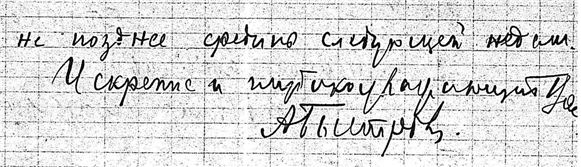 не позднее средины следующей недели.
Искренне и глубокоуважающий Вас
АБыстров.